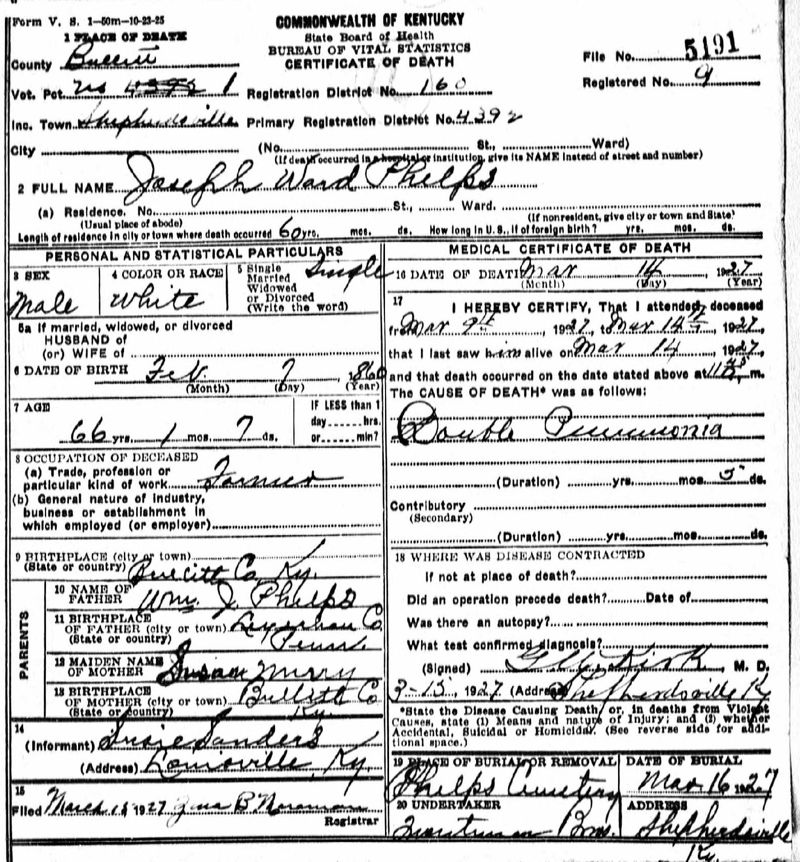 Form V. S. 1-50m-10-23-25
COMMONWEALTH OF KENTUCKY
State Board of Health
BUREAU OF VITAL STATISTICS
CERTIFICATE OF DEATH
1 PLACE OF DEATH
County Bullitt
File No. 5191
Registered No. 9
Vot. Pct. No 4392 1 Registration District No. 160
Inc. Town Shepherdsville Primary Registration District No. 4392
City (No. St., Ward)
(If death occurred in a hospital or institution, give its NAME instead of street and number)
2 FULL NAME Joseph Ward Phelps
(a) Residence. No. St., Ward.
(Usual place of abode) (If nonresident, give city or town and State)
Length of residence in city or town where death occurred 60 yrs. mos. ds. How long in U. S., if of foreign birth? yrs. mos. ds.
PERSONAL AND STATISTICAL PARTICULARS
3 SEX
Male
4 COLOR OR RACE
White
5 Single
Married
Widowed
or Divorced
(Write the word)
Single
5a If married, widowed, or divorced
HUSBAND of
(or) WIFE of
6 DATE OF BIRTH Feb. 7, 1860
(Month) (Day) (Year)
7 AGE
66 yrs. 1 mos. 7 ds.
IF LESS than 1
day hrs.
or min?
8 OCCUPATION OF DECEASED
(a) Trade, profession or
particular kind of work Farmer
(b) General nature of industry,
business or establishment in
which employed (or employer)
9 BIRTHPLACE (city or town)
(State or country) Bullitt Co Ky.
PARENTS
10 NAME OF
FATHER Wm. J. Phelps
11 BIRTHPLACE
OF FATHER (city or town) Co
(State or country)
12 MAIDEN NAME
OF MOTHER Susan
13 BIRTHPLACE
OF MOTHER (city or town) Bullitt Co
(State or country) Ky.
14
(Informant) Susie Sanders
(Address) Louisville, Ky
15
Filed March 1927 B
Registrar
MEDICAL CERTIFICATE OF DEATH
16 DATE OF DEATH Mar 14 1927
(Month) (Day) (Year)
17
I HEREBY CERTIFY, That I attended deceased
from Mar 9th, 1927, to Mar 14th, 1927,
that I last saw him alive on Mar 14, 1927,
and that death occurred on the date stated above at 11 m.
The CAUSE OF DEATH* was as follows:
Double Pneumonia
(Duration) yrs. mos. 5 ds.
Contributory
(Secondary)
(Duration) yrs. mos. ds.
18 WHERE WAS DISEASE CONTRACTED
If not at place of death?
Did an operation precede death? Date of
Was there an autopsy?
What test confirmed diagnosis?
(Signed) Kirk, M. D.
3-15, 1927 (Address) Shepherdsville Ky
*State the Disease Causing Death, or, in deaths from Violent
Causes, state (1) Means and nature of Injury; and (2) whether
Accidental, Suicidal or Homicidal. (See reverse side for addi-
tional space.)
19 PLACE OF BURIAL OR REMOVAL
Phelps Cemetery
DATE OF BURIAL
Mar 16 1927
20 UNDERTAKER
Troutman Bros.
ADDRESS
Shepherdsville
Ky.